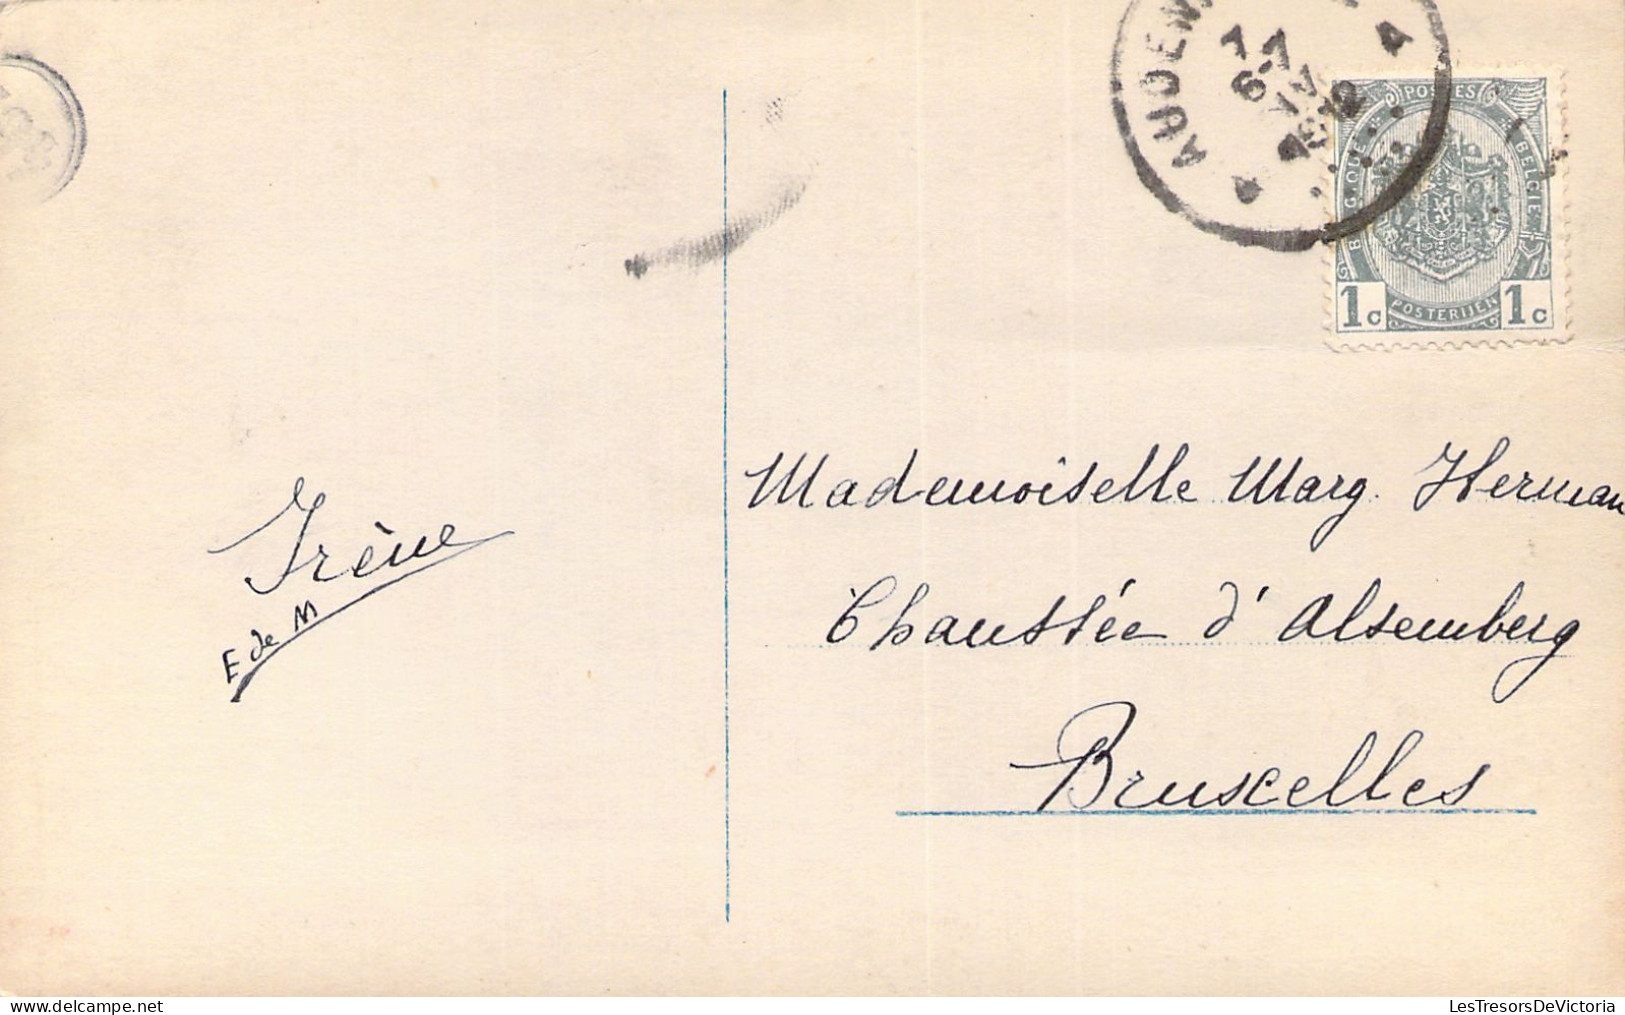 AUDEN
POSTES
BELGIQUE
BELGIE
POSTERIJEN
1c 1c
Irène
E de M
Mademoiselle Marg. Herman
Chaussée d'Alsemberg
Bruxelles
LesTresorsDeVictoria